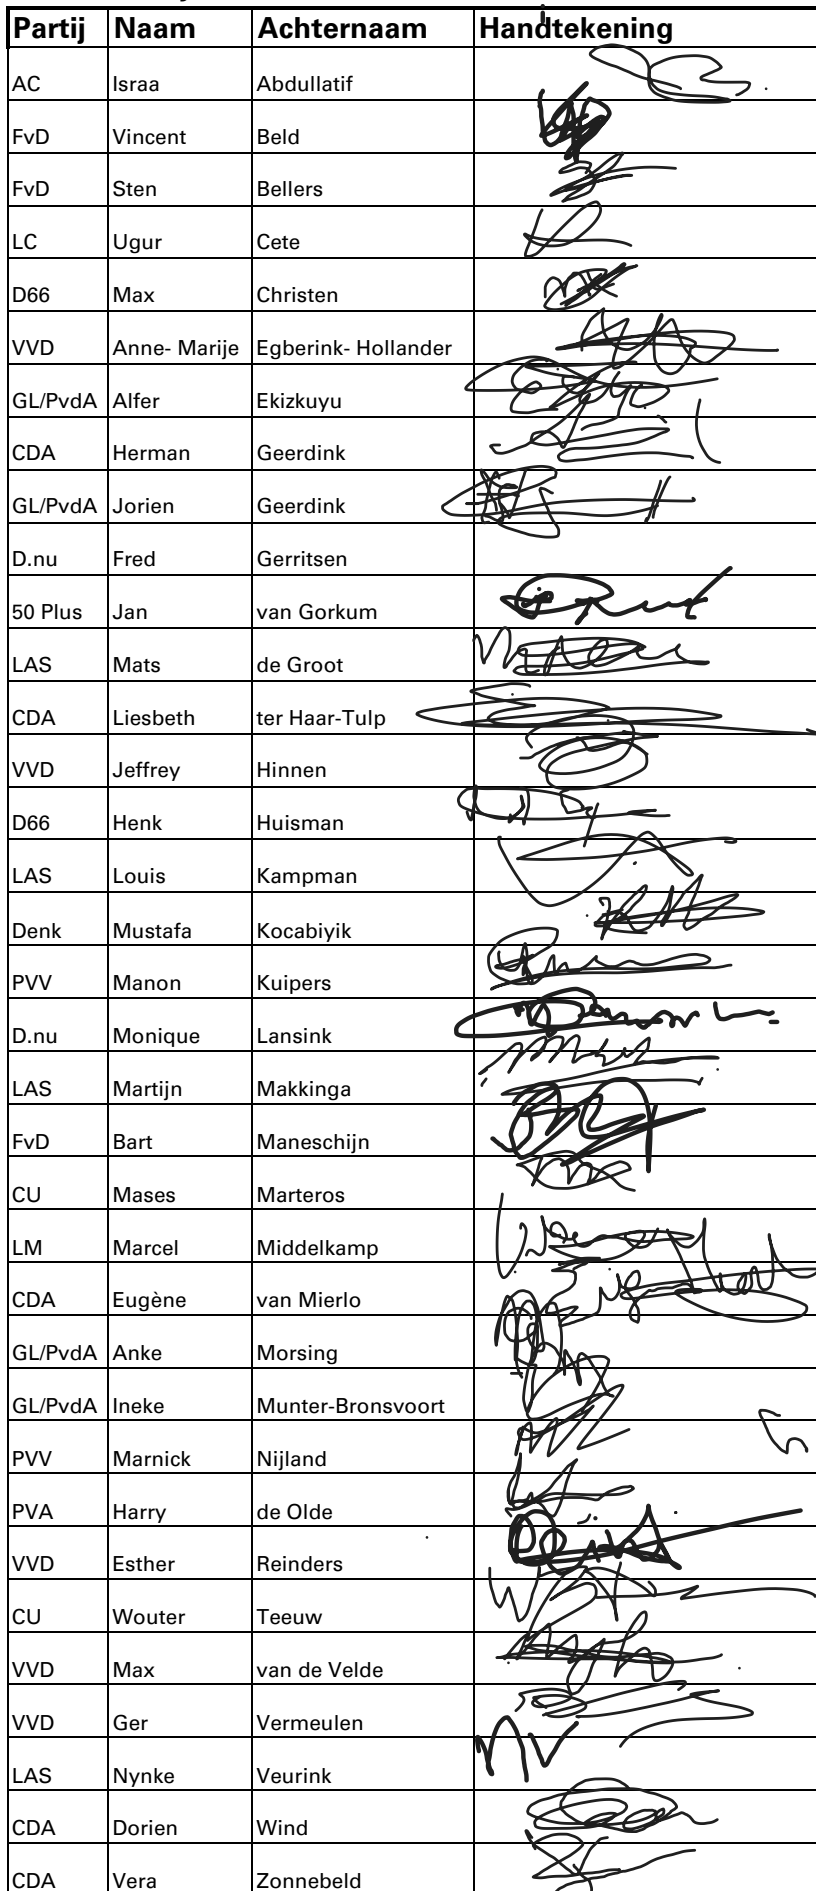 Partij Naam Achternaam Handtekening
AC Israa Abdullatif
FvD Vincent Beld
FvD Sten Bellers
LC Ugur Cete
D66 Max Christen
VVD Anne- Marije Egberink- Hollander
GL/PvdA Alfer Ekizkuyu
CDA Herman Geerdink
GL/PvdA Jorien Geerdink
D.nu Fred Gerritsen
50 Plus Jan van Gorkum
LAS Mats de Groot
CDA Liesbeth ter Haar-Tulp
VVD Jeffrey Hinnen
D66 Henk Huisman
LAS Louis Kampman
Denk Mustafa Kocabiyik
PVV Manon Kuipers
D.nu Monique Lansink
LAS Martijn Makkinga
FvD Bart Maneschijn
CU Mases Marteros
LM Marcel Middelkamp
CDA Eugène van Mierlo
GL/PvdA Anke Morsing
GL/PvdA Ineke Munter-Bronsvoort
PVV Marnick Nijland
PVA Harry de Olde
VVD Esther Reinders
CU Wouter Teeuw
VVD Max van de Velde
VVD Ger Vermeulen
LAS Nynke Veurink
CDA Dorien Wind
CDA Vera Zonnebeld